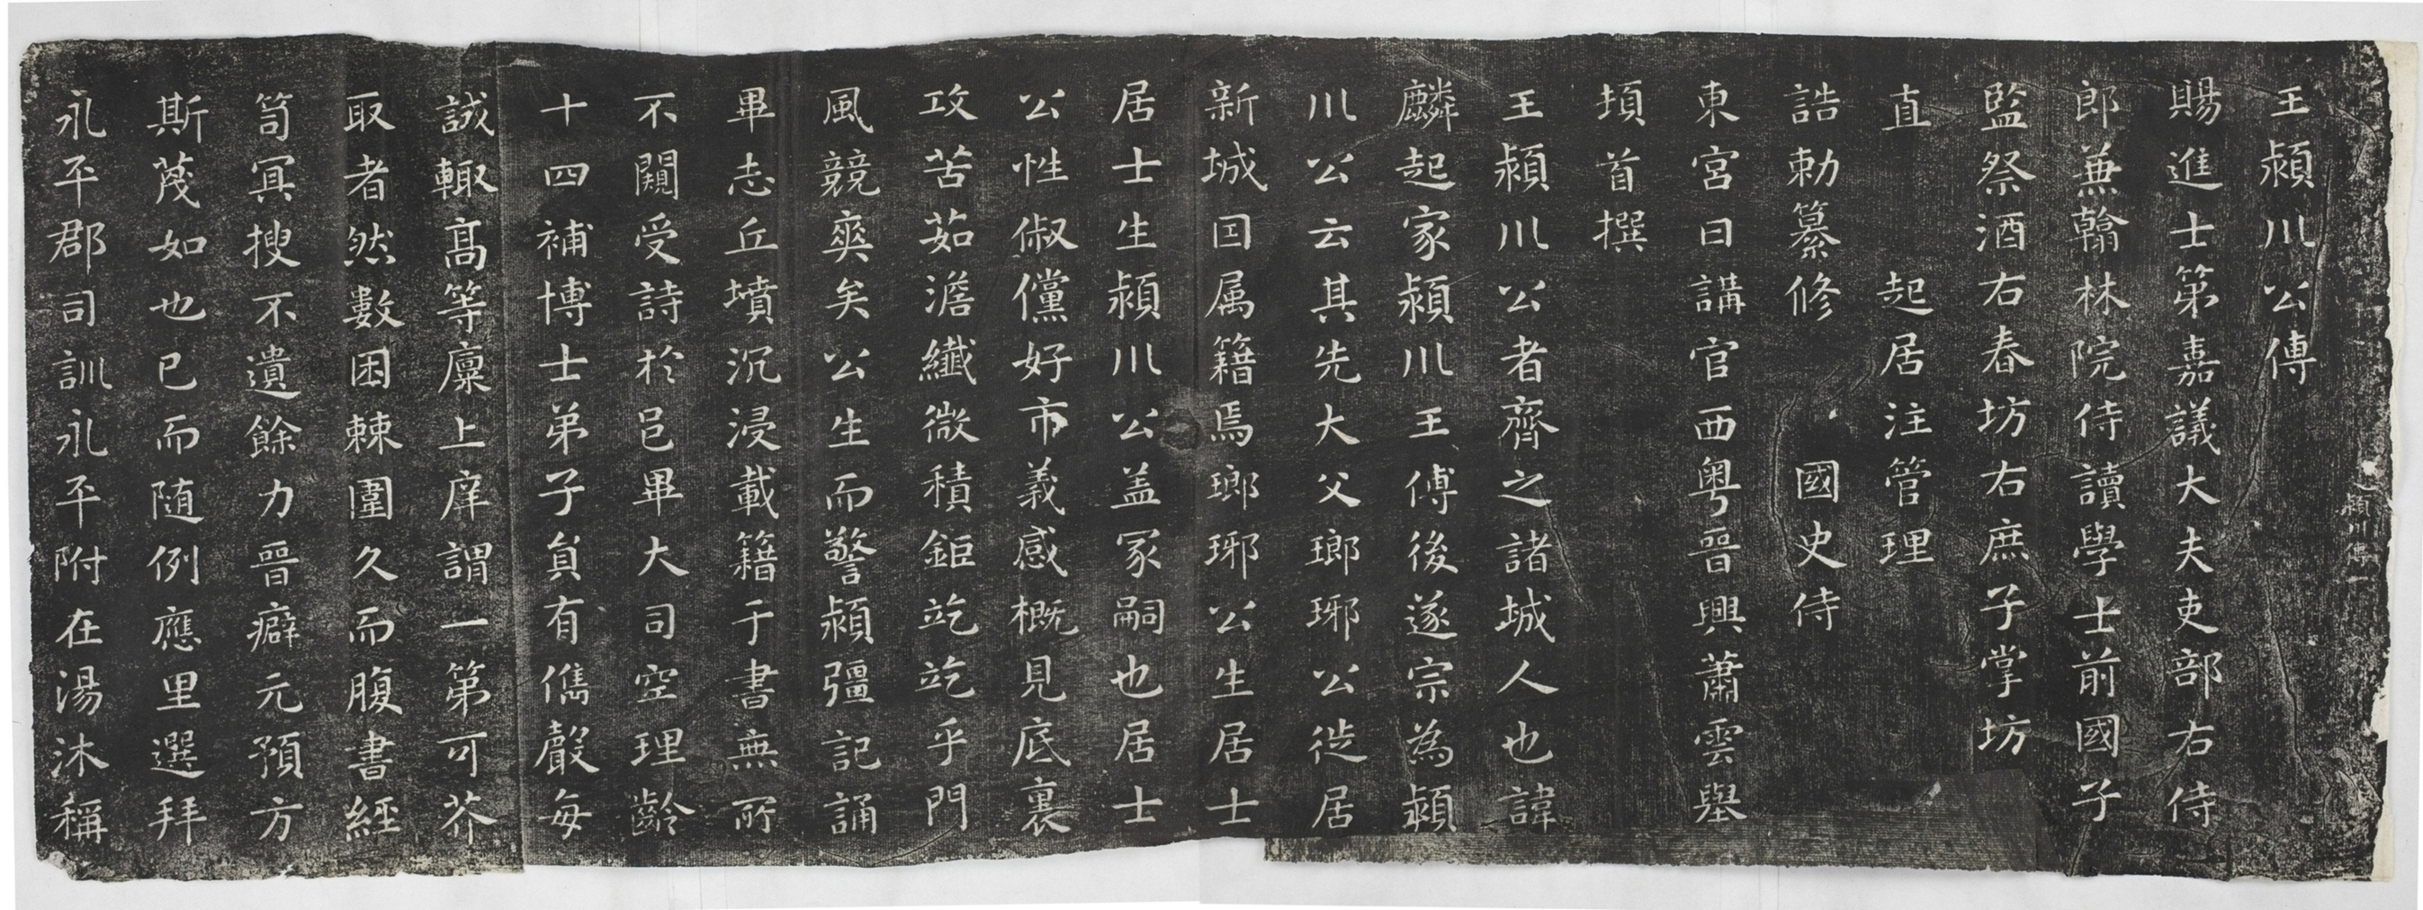 王潁川公傳
賜進士第嘉議大夫吏部右侍
郎兼翰林院侍讀學士前國子
監祭酒右春坊右庶子掌坊
直 起居注管理
誥勅纂修 國史侍
東宮日講官西粵晉興蕭雲舉
頓首撰
王潁川公者齊之諸城人也諱
麟起家潁川王傅後遂宗為潁
川公云其先大父瑯琊公徙居
新城因属籍焉瑯琊公生居士
居士生潁川公蓋冢嗣也居士
公性俶儻好市義感概見底裏
攻苦茹澹纖微積鉅訖訖乎門
風競爽矣公生而警潁彊記誦
畢志丘墳沉浸載籍于書無所
不闚受詩於邑畢大司空理齡
十四補博士弟子員有儁聲每
試輒高等廩上庠謂一第可芥
取者然數困棘圍久而腹書經
笥冥搜不遺餘力晉癖元預方
斯蔑如也已而随例應里選拜
永平郡司訓永平附在湯沐稱
潁川傳一